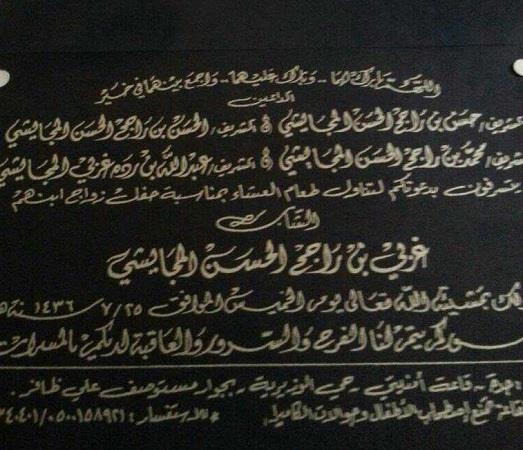 اللهم بارك لهما .. وبارك عليهما .. واجمع بينهما في خير
الداعين
الشريف/ حسن بن راجح الحسن المجايشي & الشريف/ الحسن بن راجح الحسن المجايشي
الشريف/ محمد بن راجح الحسن المجايشي & الشريف/ عبدالله بن رده غزلي المجايشي
يتشرفون بدعوتكم لتناول طعام العشاء بمناسبة حفل زواج ابنهم
الشاب
غزلي بن راجح الحسن المجايشي
لك بمشيئة الله تعالى يوم الخميس الموافق ٧/٢٥ سنة ١٤٣٦ هـ
يتم لنا الفرح والسرور والعاقبة لديكم بالمسرات
جدة - قاعة - حي الوزيرية - بجوار مستوصف علي ظافر .
اصطحاب الأطفال وجوالات الكاميرا * للاستفسار : ٠٥٠٠١٥٨٩٢١/